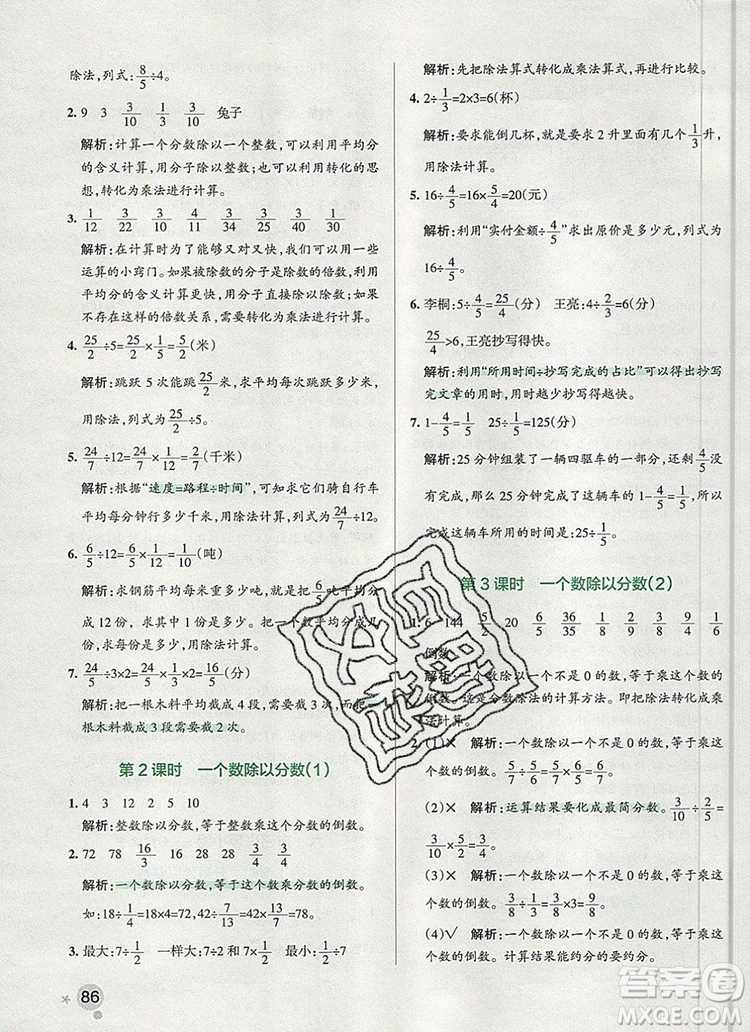 除法,列式:8/5÷4。
2. 9 3 3/10 1/3 3/10 兔子
解析:计算一个分数除以一个整数,可以利用平均分
的含义计算,用分子除以整数;也可以利用转化的思
想,转化为乘法进行计算。
3. 1/12 3/22 3/10 3/34 1/40 1/30
解析:在计算时为了能够又对又快,我们可以用一些
运算的小窍门。如果被除数的分子是除数的倍数,利用
平均分的含义计算更快,用分子直接除以除数;如果
不存在这样的倍数关系,需要转化为乘法进行计算。
4. 25/2÷5=25/2×1/5=5/2(米)
解析:跳跃5次能跳25/2米,求平均每次跳跃多少米,
用除法,列式为25/2÷5。
5. 24/7÷12=24/7×1/12=2/7(千米)
解析:根据“速度=路程÷时间”,可以求得骑自行车
平均每分钟行多少千米,用除法,列式为24/7÷12。
6. 6/5÷12=6/5×1/12=1/10(吨)
解析:求钢筋平均每米重多少吨,就是把6/5吨平均
分成12份,求其中的一份是多少,平均分成几
份,求每份是多少,用除法。
7. 24/5÷3×2=24/5×1/3×2=16/5(分)
解析:把一根木料平均截成4段,需要截3次,而把一
根木料截成3段需要截2次。
第2课时 一个数除以分数(1)
1. 4 3 12 2 5 10
解析:整数除以分数,等于整数乘这个分数的倒数。
2. 72 78 16/3 16 28 3/2 3/4
解析:一个数除以分数,等于这个数乘分数的倒数。
如:18÷1/4=18×4=72,18÷3/13=18×13/3=78。
3. 最大:7÷1/2 一样大:7÷2和7×1/2 最小:1/2÷7
解析:先把除法算式转化成乘法算式,再进行比较。
4. 2÷1/3=2×3=6(杯)
解析:要求能倒几杯,就是要求2升里面有几个1/3升,
用除法计算。
5. 16÷4/5=16×5/4=20(元)
解析:利用“实付金额÷4/5”求出原价是多少元,列式为
16÷4/5。
6. 李桐:5÷4/5=25/4(分) 王亮:4÷2/3=6(分)
25/4>6,王亮抄写得快。
解析:利用“所用时间÷抄写完成的占比”可以得出抄写
完文章的用时,用时越少抄写得越快。
7. 1-4/5=1/5 25÷1/5=125(分)
解析:25分钟组装了一辆四驱车的一部分,还剩4/5
没有完成,那么25分钟完成了这辆车的1-4/5=1/5。所以
完成这辆车所用的时间:25÷1/5。
第3课时 一个数除以分数(2)
1. 6 144 5/2 20 6/5 36/35 1/11 8/9 6/11 1/6
倒数
解析:一个数除以一个不是0的数,等于乘这个数的
倒数。这是分数除法的计算方法。即把除法转化成乘
法计算。
2. (1)× 解析:一个数除以一个不是0的数,等于乘这
个数的倒数。5/7÷6/5=5/7×5/6=25/42。
(2)× 解析:运算结果要化成最简分数。3/10÷2/5=
3/10×5/2=3/4。
(3)× 解析:一个数除以一个不是0的数,等于乘这
个数的倒数。3/8÷1/3=3/8×3=9/8。
(4)√ 解析:一个数除以一个不是0的数,等于乘这
个数的倒数。计算结果能约分的要约分。
86
答案圈
MXQE.COM